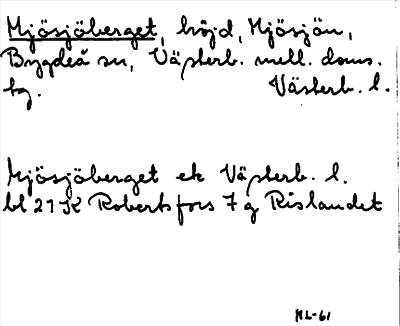 Mjösjöberget, höjd, Mjösjön,
Bygdeå sn, Västerb. mell. doms.
tg. Västerb. l.
Mjösjöberget ek Västerb. l.
bl 21 K Robertsfors 7 g Rislandet
ML-61